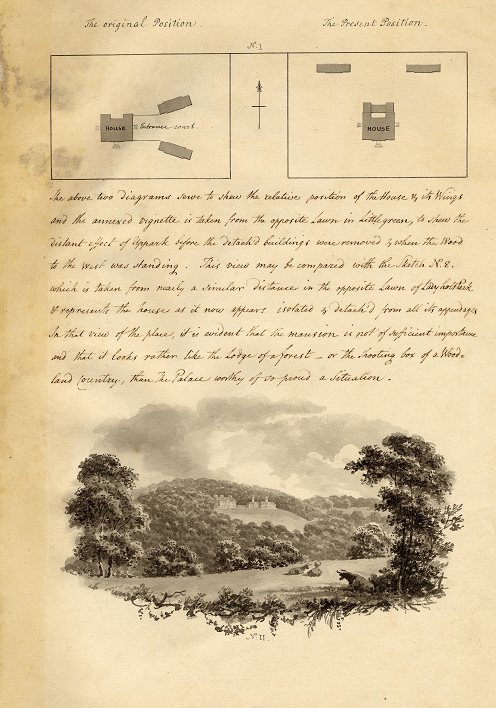 The original Position.
The Present Position.
N. I
HOUSE
Entrance court.
HOUSE
The above two diagrams serve to shew the relative position of the House & its Wings
and the annexed vignette is taken from the opposite Lawn in Littlegreen, to shew the
distant effect of Uppark before the detach'd buildings were removed & when the Wood
to the West was standing. This view may be compared with the Sketch N. 8.
which is taken from nearly a similar distance in the opposite Lawn of Ladyholt Park
& represents the house as it now appears isolated & detach'd from all its appendages
In that view of the place, it is evident that the mansion is not of sufficient importance
and that it looks rather like the Lodge of a forest – or the shooting box of a Wood=
land Country, than the Palace worthy of so proud a Situation.
N. II.